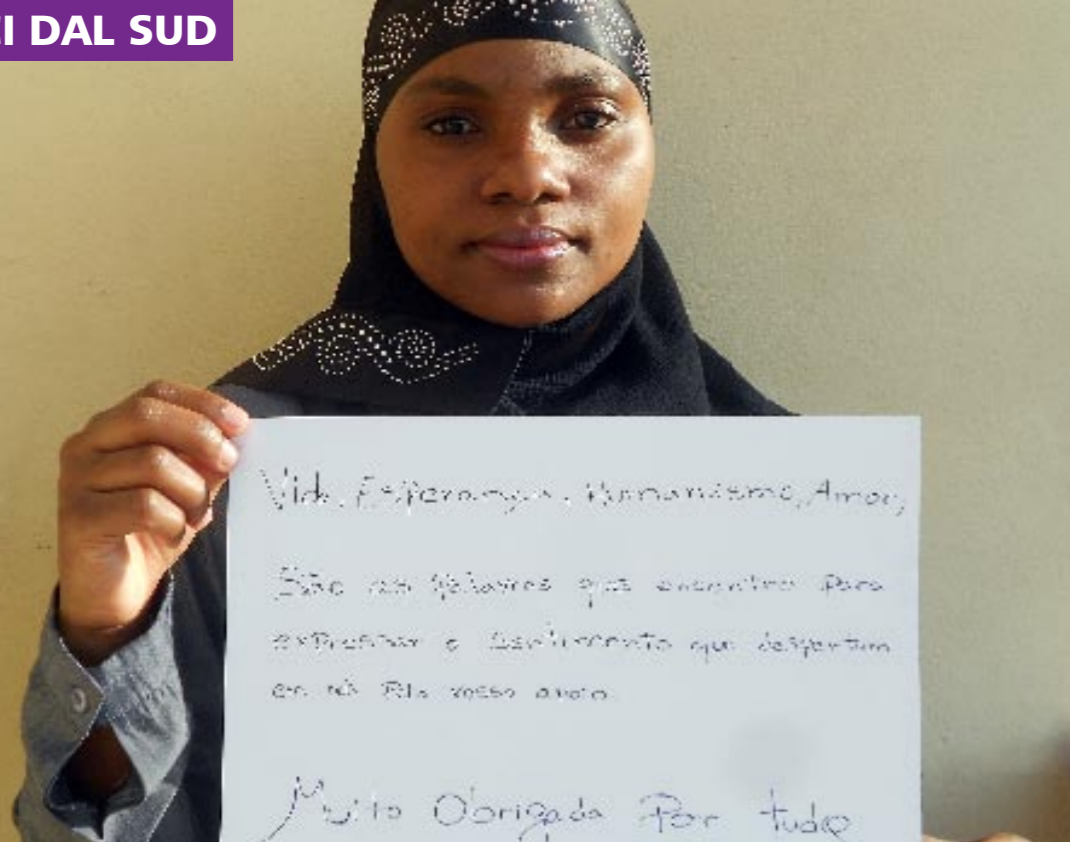 I DAL SUD
Vida, Esperança, Humanismo, Amor,
São as palavras que encontro para
expressar o sentimento que despertam
em nós pelo vosso apoio.
Muito Obrigada Por tudo